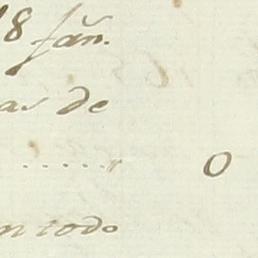 18 fañ.
as de
...... 0
n todo